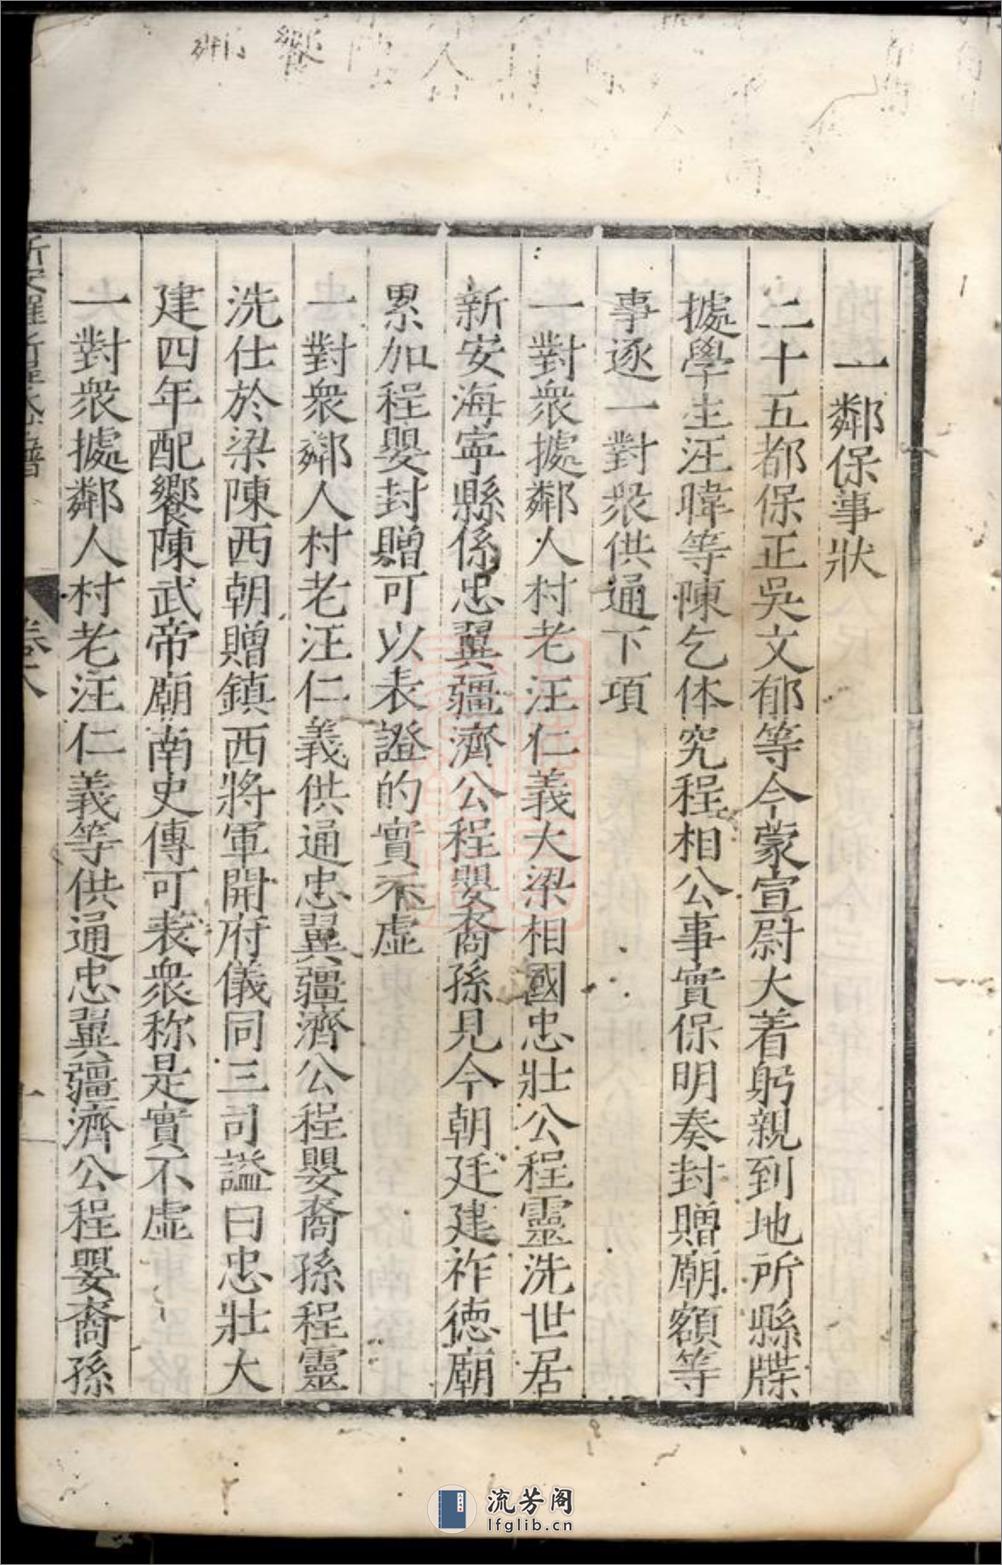 一鄰保事狀
二十五都保正吳文郁等今蒙宣尉大着躬親到地所縣牒
據學生汪暐等陳乞体究程相公事實保明奏封贈廟額等
事逐一對衆供通下項
一對衆據鄰人村老汪仁義大梁相國忠壯公程靈洗世居
新安海寧縣係忠翼疆濟公程嬰裔孫見今朝廷建祚德廟
累加程嬰封贈可以表證的實不虛
一對衆鄰人村老汪仁義供通忠翼疆濟公程嬰裔孫程靈
洗仕於梁陳西朝贈鎮西將軍開府儀同三司謚曰忠壯大
建四年配饗陳武帝廟南史傳可表衆称是實不虛
一對衆據鄰人村老汪仁義等供通忠翼疆濟公程嬰裔孫
卷六
流芳阁
lfglib.cn